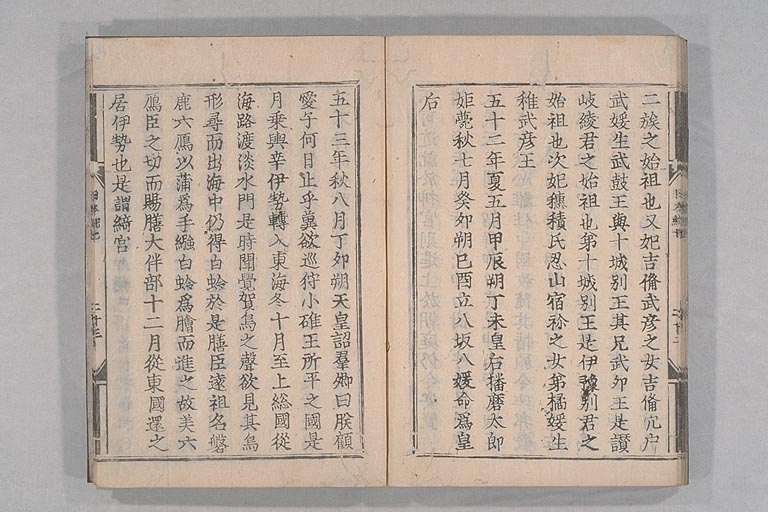 二族之始祖也又妃吉備武彦之女吉備穴戸
武媛生武皷王與十城別王其兄武卯王是讃
岐綾君之始祖也弟十城別王是伊豫別君之
始祖也次妃穗積氏忍山宿祢之女弟橘媛生
稚武彦王
五十二年夏五月甲辰朔丁未皇后播磨太郎
姫薨秋七月癸卯朔己酉立八坂入媛命爲皇
后
五十三年秋八月丁卯朔天皇詔羣卿曰朕顧
愛子何日止乎冀欲巡狩小碓王所平之國是
月乗輿幸伊勢轉入東海冬十月至上総國從
海路渡淡水門是時聞覺賀鳥之聲欲見其鳥
形尋而出海中仍得白蛤於是膳臣遠祖名磐
鹿六鴈以蒲爲手繦白蛤爲膾而進之故美六
鴈臣之切而賜膳大伴部十二月從東國還之
居伊勢也是謂綺宮